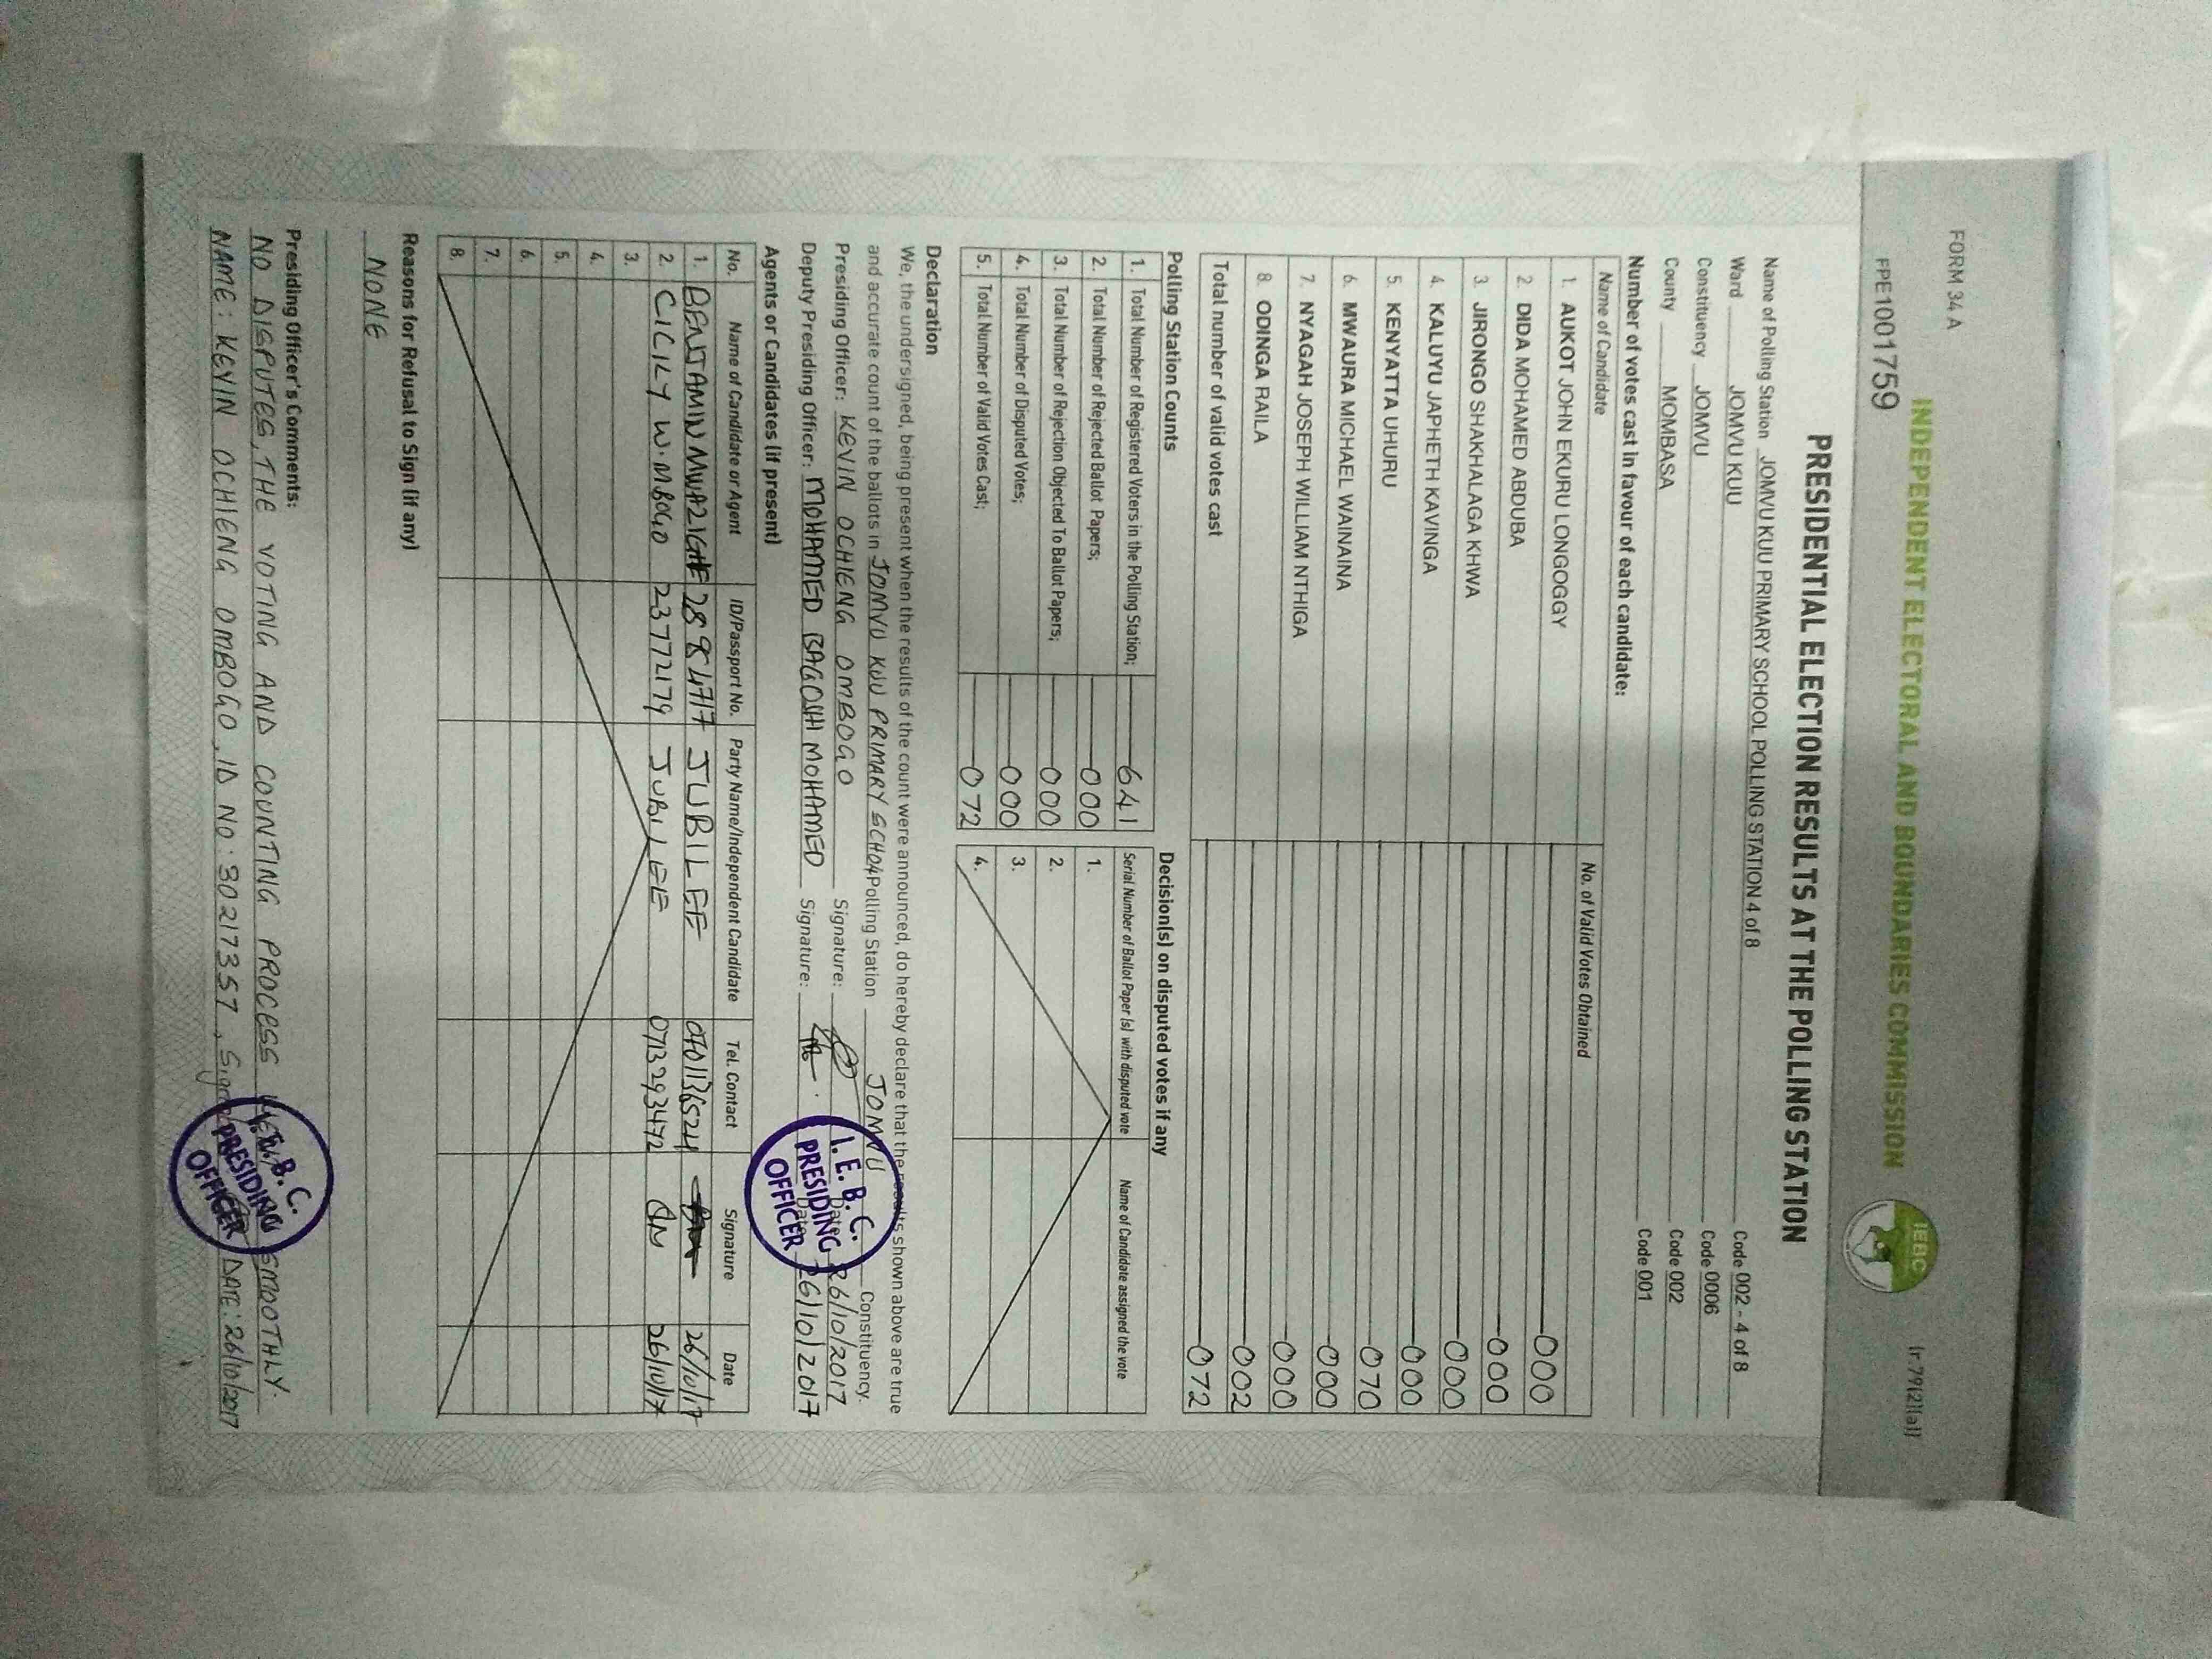 FORM 34 A
(r.79(2)(a))
INDEPENDENT ELECTORAL AND BOUNDARIES COMMISSION
IEBC
FPE1001759
PRESIDENTIAL ELECTION RESULTS AT THE POLLING STATION
Name of Polling Station JOMVU KUU PRIMARY SCHOOL POLLING STATION 4 of 8 Code 002 - 4 of 8
Ward JOMVU KUU Code 0006
Constituency JOMVU Code 002
County MOMBASA Code 001
Number of votes cast in favour of each candidate:
Name of Candidate No. of Valid Votes Obtained
1. AUKOT JOHN EKURU LONGOGGY 000
2. DIDA MOHAMED ABDUBA 000
3. JIRONGO SHAKHALAGA KHWA 000
4. KALUYU JAPHETH KAVINGA 000
5. KENYATTA UHURU 070
6. MWAURA MICHAEL WAINAINA 000
7. NYAGAH JOSEPH WILLIAM NTHIGA 000
8. ODINGA RAILA 002
Total number of valid votes cast 072
Polling Station Counts
1. Total Number of Registered Voters in the Polling Station; 641
2. Total Number of Rejected Ballot Papers; 000
3. Total Number of Rejection Objected To Ballot Papers; 000
4. Total Number of Disputed Votes; 000
5. Total Number of Valid Votes Cast; 072
Decision(s) on disputed votes if any
Serial Number of Ballot Paper (s) with disputed vote Name of Candidate assigned the vote
1.
2.
3.
4.
Declaration
We, the undersigned, being present when the results of the count were announced, do hereby declare that the results shown above are true
and accurate count of the ballots in JOMVU KUU PRIMARY Polling Station JOMVU Constituency.
Presiding Officer: KEVIN OCHIENG OMBOGO Signature: Date: 26/10/2017
Deputy Presiding Officer: MOHAMED BAGOSH MOHAMED Signature: Date: 26/10/2017
I. E. B. C.
PRESIDING
OFFICER
Agents or Candidates (if present)
No. Name of Candidate or Agent ID/Passport No. Party Name/Independent Candidate Tel. Contact Signature Date
1. BENJAMIN JUBILEE 26/10/17
2. CICILY W. MBOGO 23772179 JUBILEE 0713293472 26/10/17
3.
4.
5.
6.
7.
8.
Reasons for Refusal to Sign (if any)
NONE
Presiding Officer's Comments:
NO DISPUTES, THE VOTING AND COUNTING PROCESS SMOOTHLY.
NAME: KEVIN OCHIENG OMBOGO, ID NO: 30217357, DATE: 26/10/2017
I. E. B. C.
PRESIDING
OFFICER